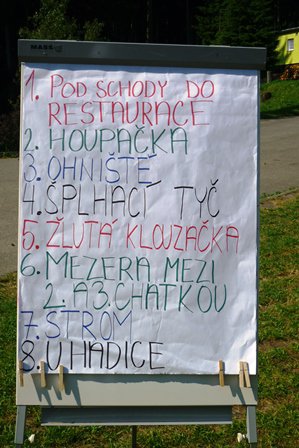 MAGG
1. POD SCHODY DO
RESTAURACE
2. HOUPAČKA
3. OHNIŠTĚ
4. ŠPLHACÍ TYČ
5. ŽLUTÁ KLOUZAČKA
6. MEZERA MEZI
2. A 3. CHATKOU
7. STROM
8. U HADICE